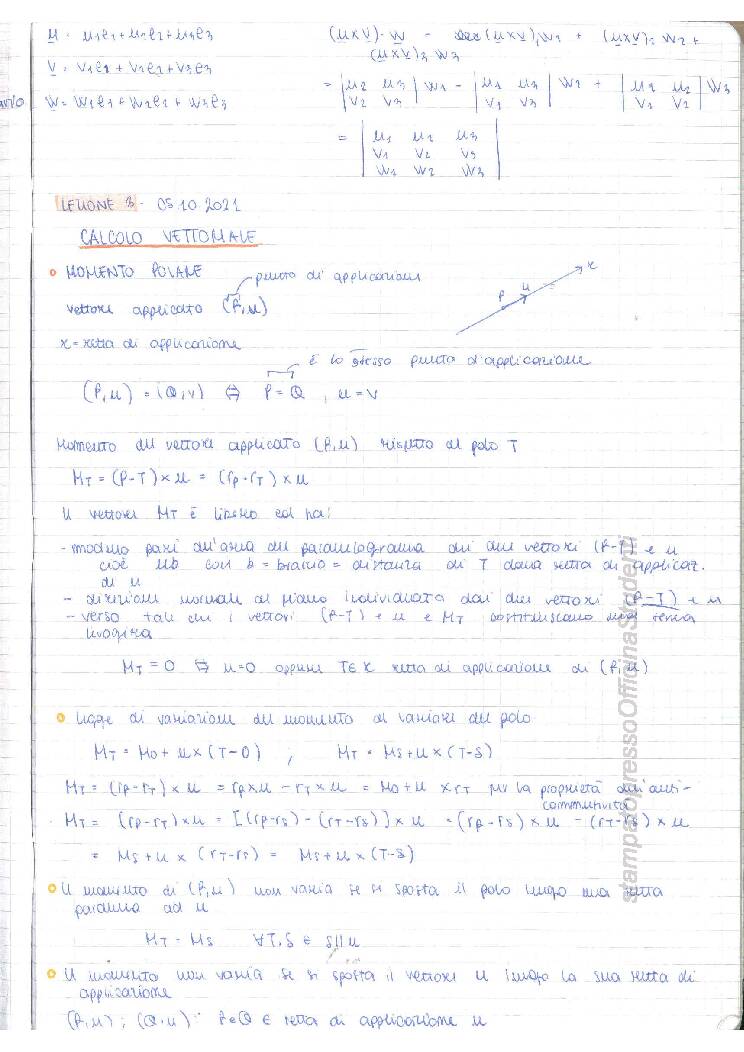 u = u1e1 + u2e2 + u3e3
v = v1e1 + v2e2 + v3e3
w = w1e1 + w2e2 + w3e3
(u×v)·w = (u×v)1w1 + (u×v)2 w2 +
(u×v)3 w3
= |u2 u3| w1 - |u1 u3| w2 + |u1 u2| w3
|v2 v3| |v1 v3| |v1 v2|
= |u1 u2 u3|
|v1 v2 v3|
|w1 w2 w3|
LEZIONE 3 - 05.10.2021
CALCOLO VETTORIALE
MOMENTO POLARE
punto di applicazione
vettore applicato (P,u)
r = retta di applicazione
P u r
è lo stesso punto d'applicazione
(P,u) = (Q,v) ⇔ P = Q , u = v
Momento del vettore applicato (P,u) rispetto al polo T
MT = (P-T) × u = (rp-rT) × u
Il vettore MT è libero ed ha:
- modulo pari all'area del parallelogramma dei due vettori (P-T) e u
cioè ub con b = braccio = distanza di T dalla retta di applicaz.
di u
- direzione normale al piano individuata dai due vettori (P-T) e u
- verso tale che i vettori (P-T) e u e MT costituiscano una terna
levogira
MT = 0 ⇔ u=0 oppure T∈r retta di applicazione di (P,u)
Legge di variazione del momento al variare del polo
MT = MO + u×(T-O) ; MT = MS + u×(T-S)
MT = (rp-rT) × u = rp×u - rT×u = MO + u × rT per la proprietà dell'anti-
commutività
MT = (rp-rT)×u = [(rp-rS) - (rT-rS)] × u = (rp-rS) × u - (rT-rS) × u
= MS + u × (rT-rS) = MS + u × (T-S)
Il momento di (P,u) non varia se si sposta il polo lungo una retta
parallela ad u
MT = MS ∀T,S ∈ s∥u
Il momento non varia se si sposta il vettore u lungo la sua retta di
applicazione
(P,u) ; (Q,u) : P e Q ∈ retta di applicazione u
stampatopressoOfficinaStudenti